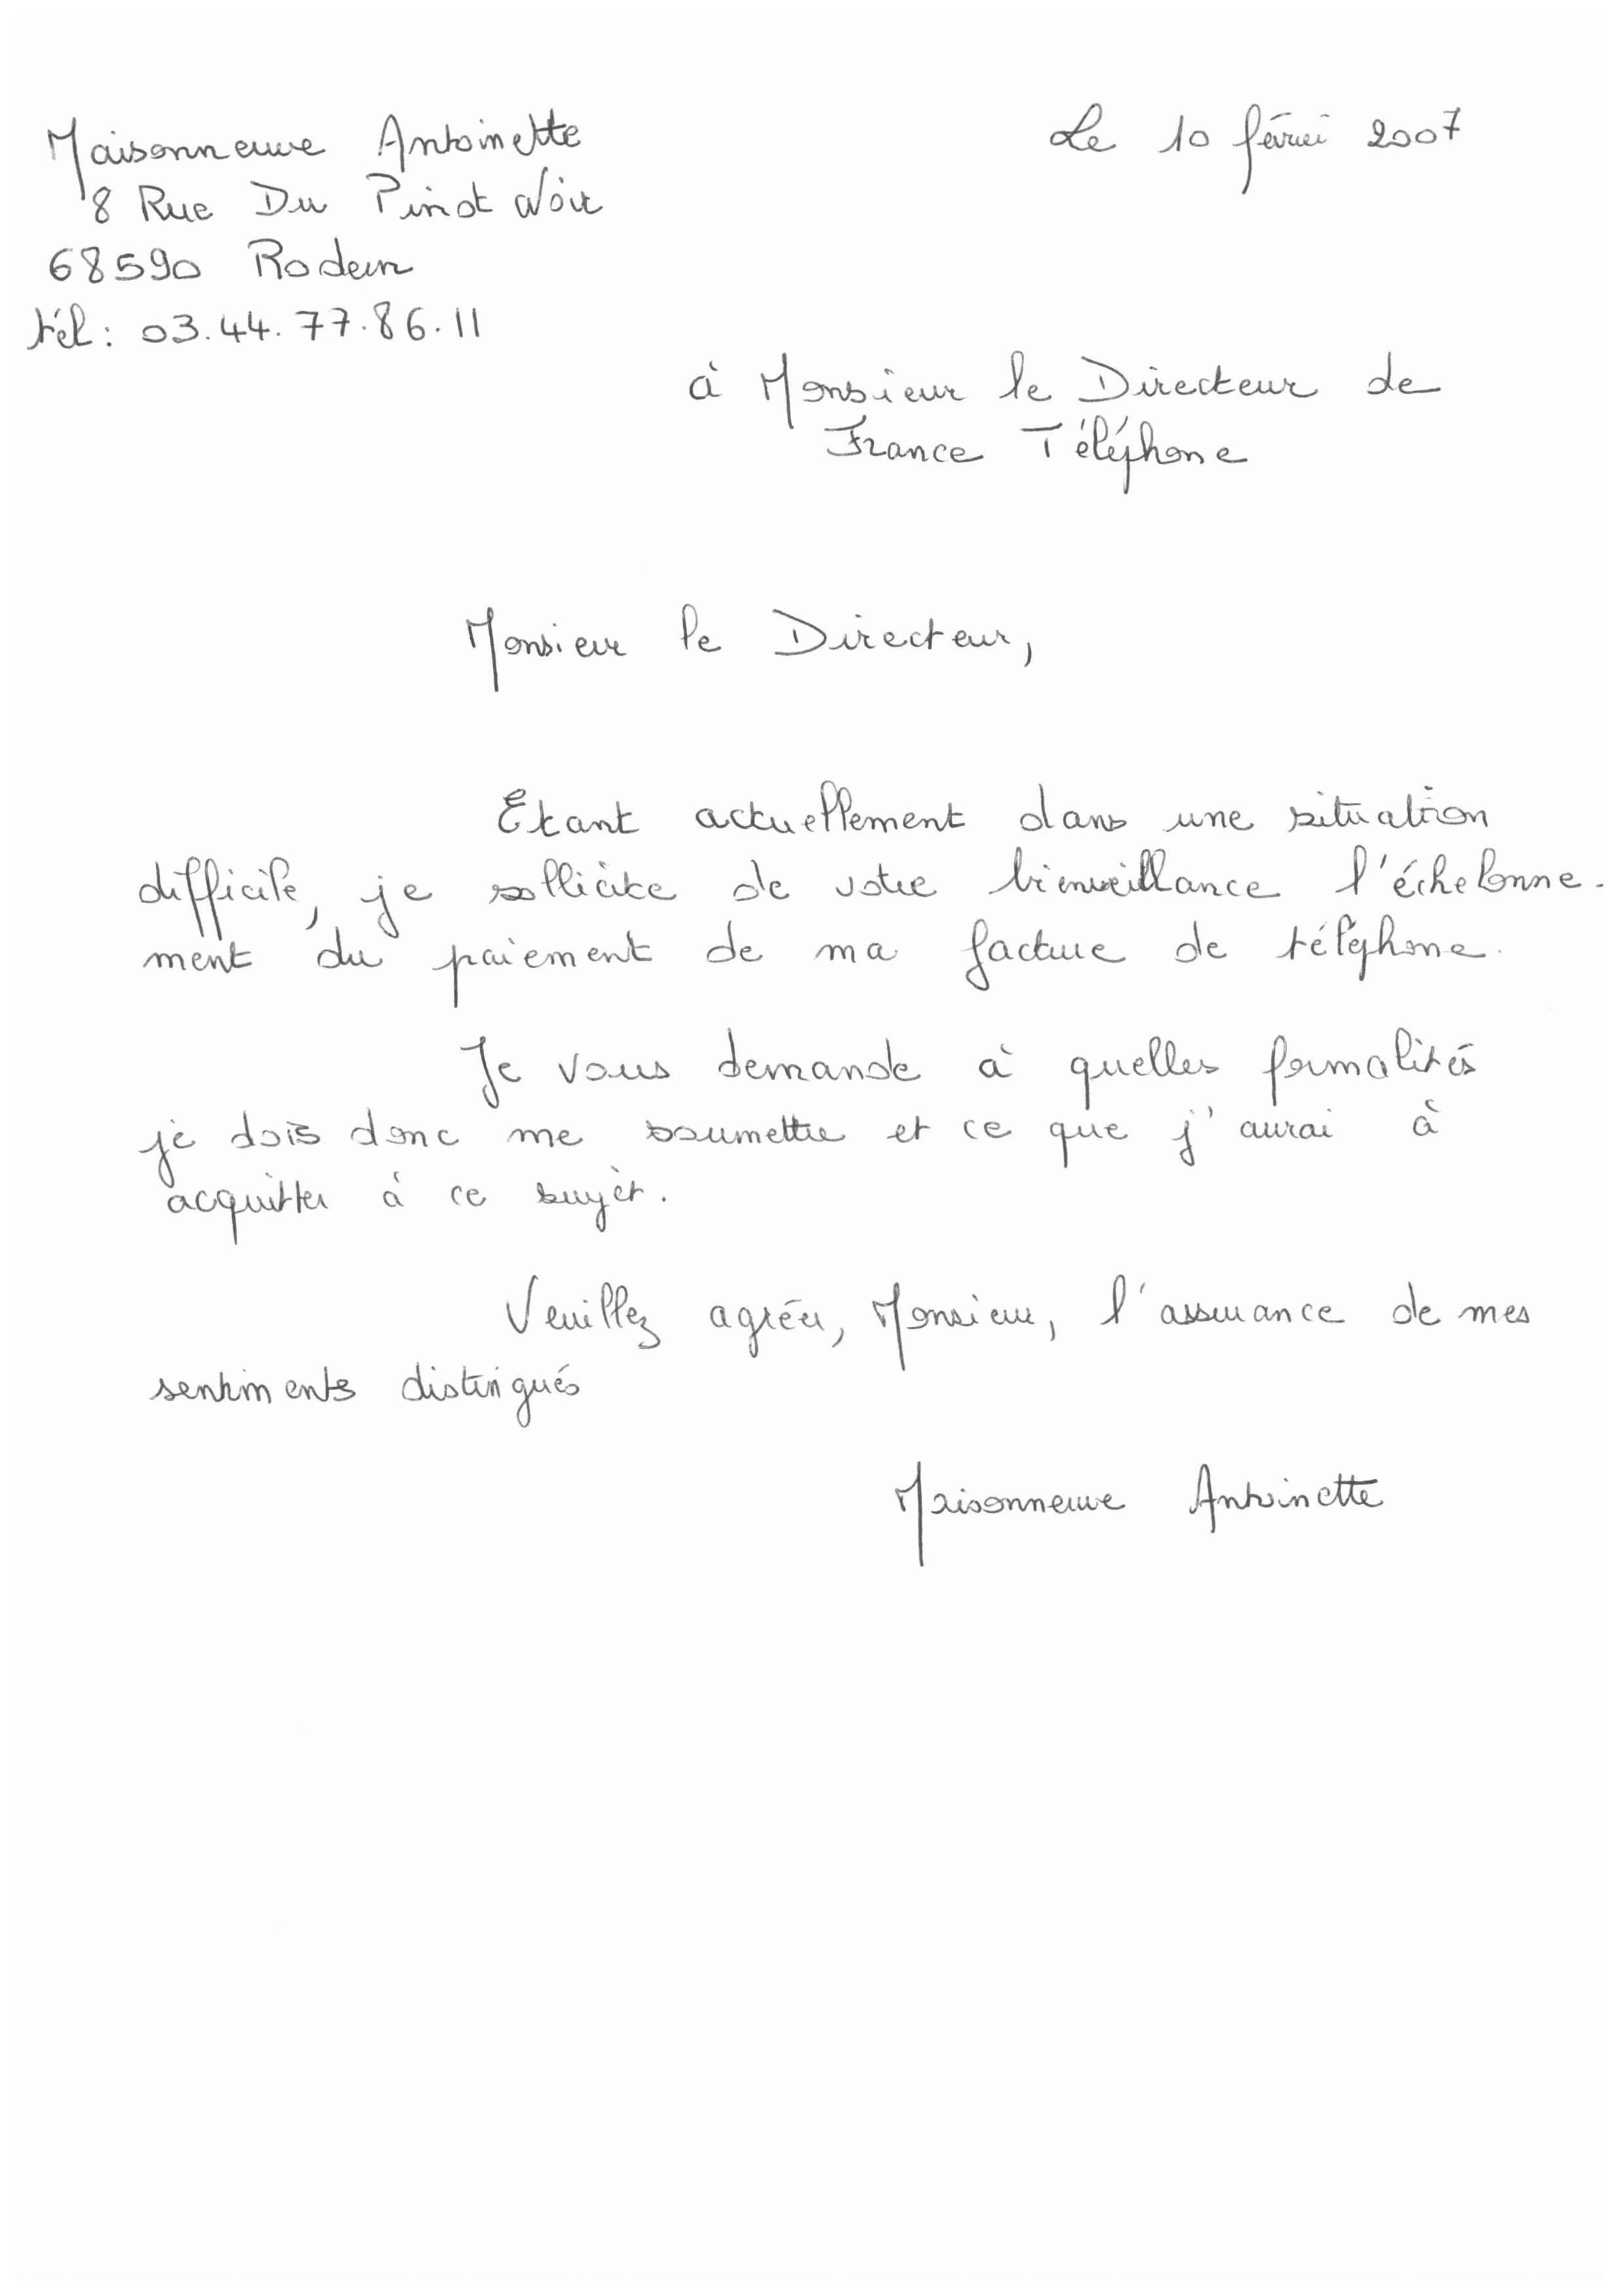 Maisonneuve Antoinette
Le 10 février 2007
8 Rue Du Pinot Noir
68590 Rodern
tél : 03.44.77.86.11
à Monsieur le Directeur de
France Téléphone
Monsieur le Directeur,
Etant actuellement dans une situation
difficile, je sollicite de votre bienveillance l'échelonne-
ment du paiement de ma facture de téléphone.
Je vous demande à quelles formalités
je dois donc me soumettre et ce que j'aurai à
acquitter à ce sujet.
Veuillez agréer, Monsieur, l'assurance de mes
sentiments distingués
Maisonneuve Antoinette